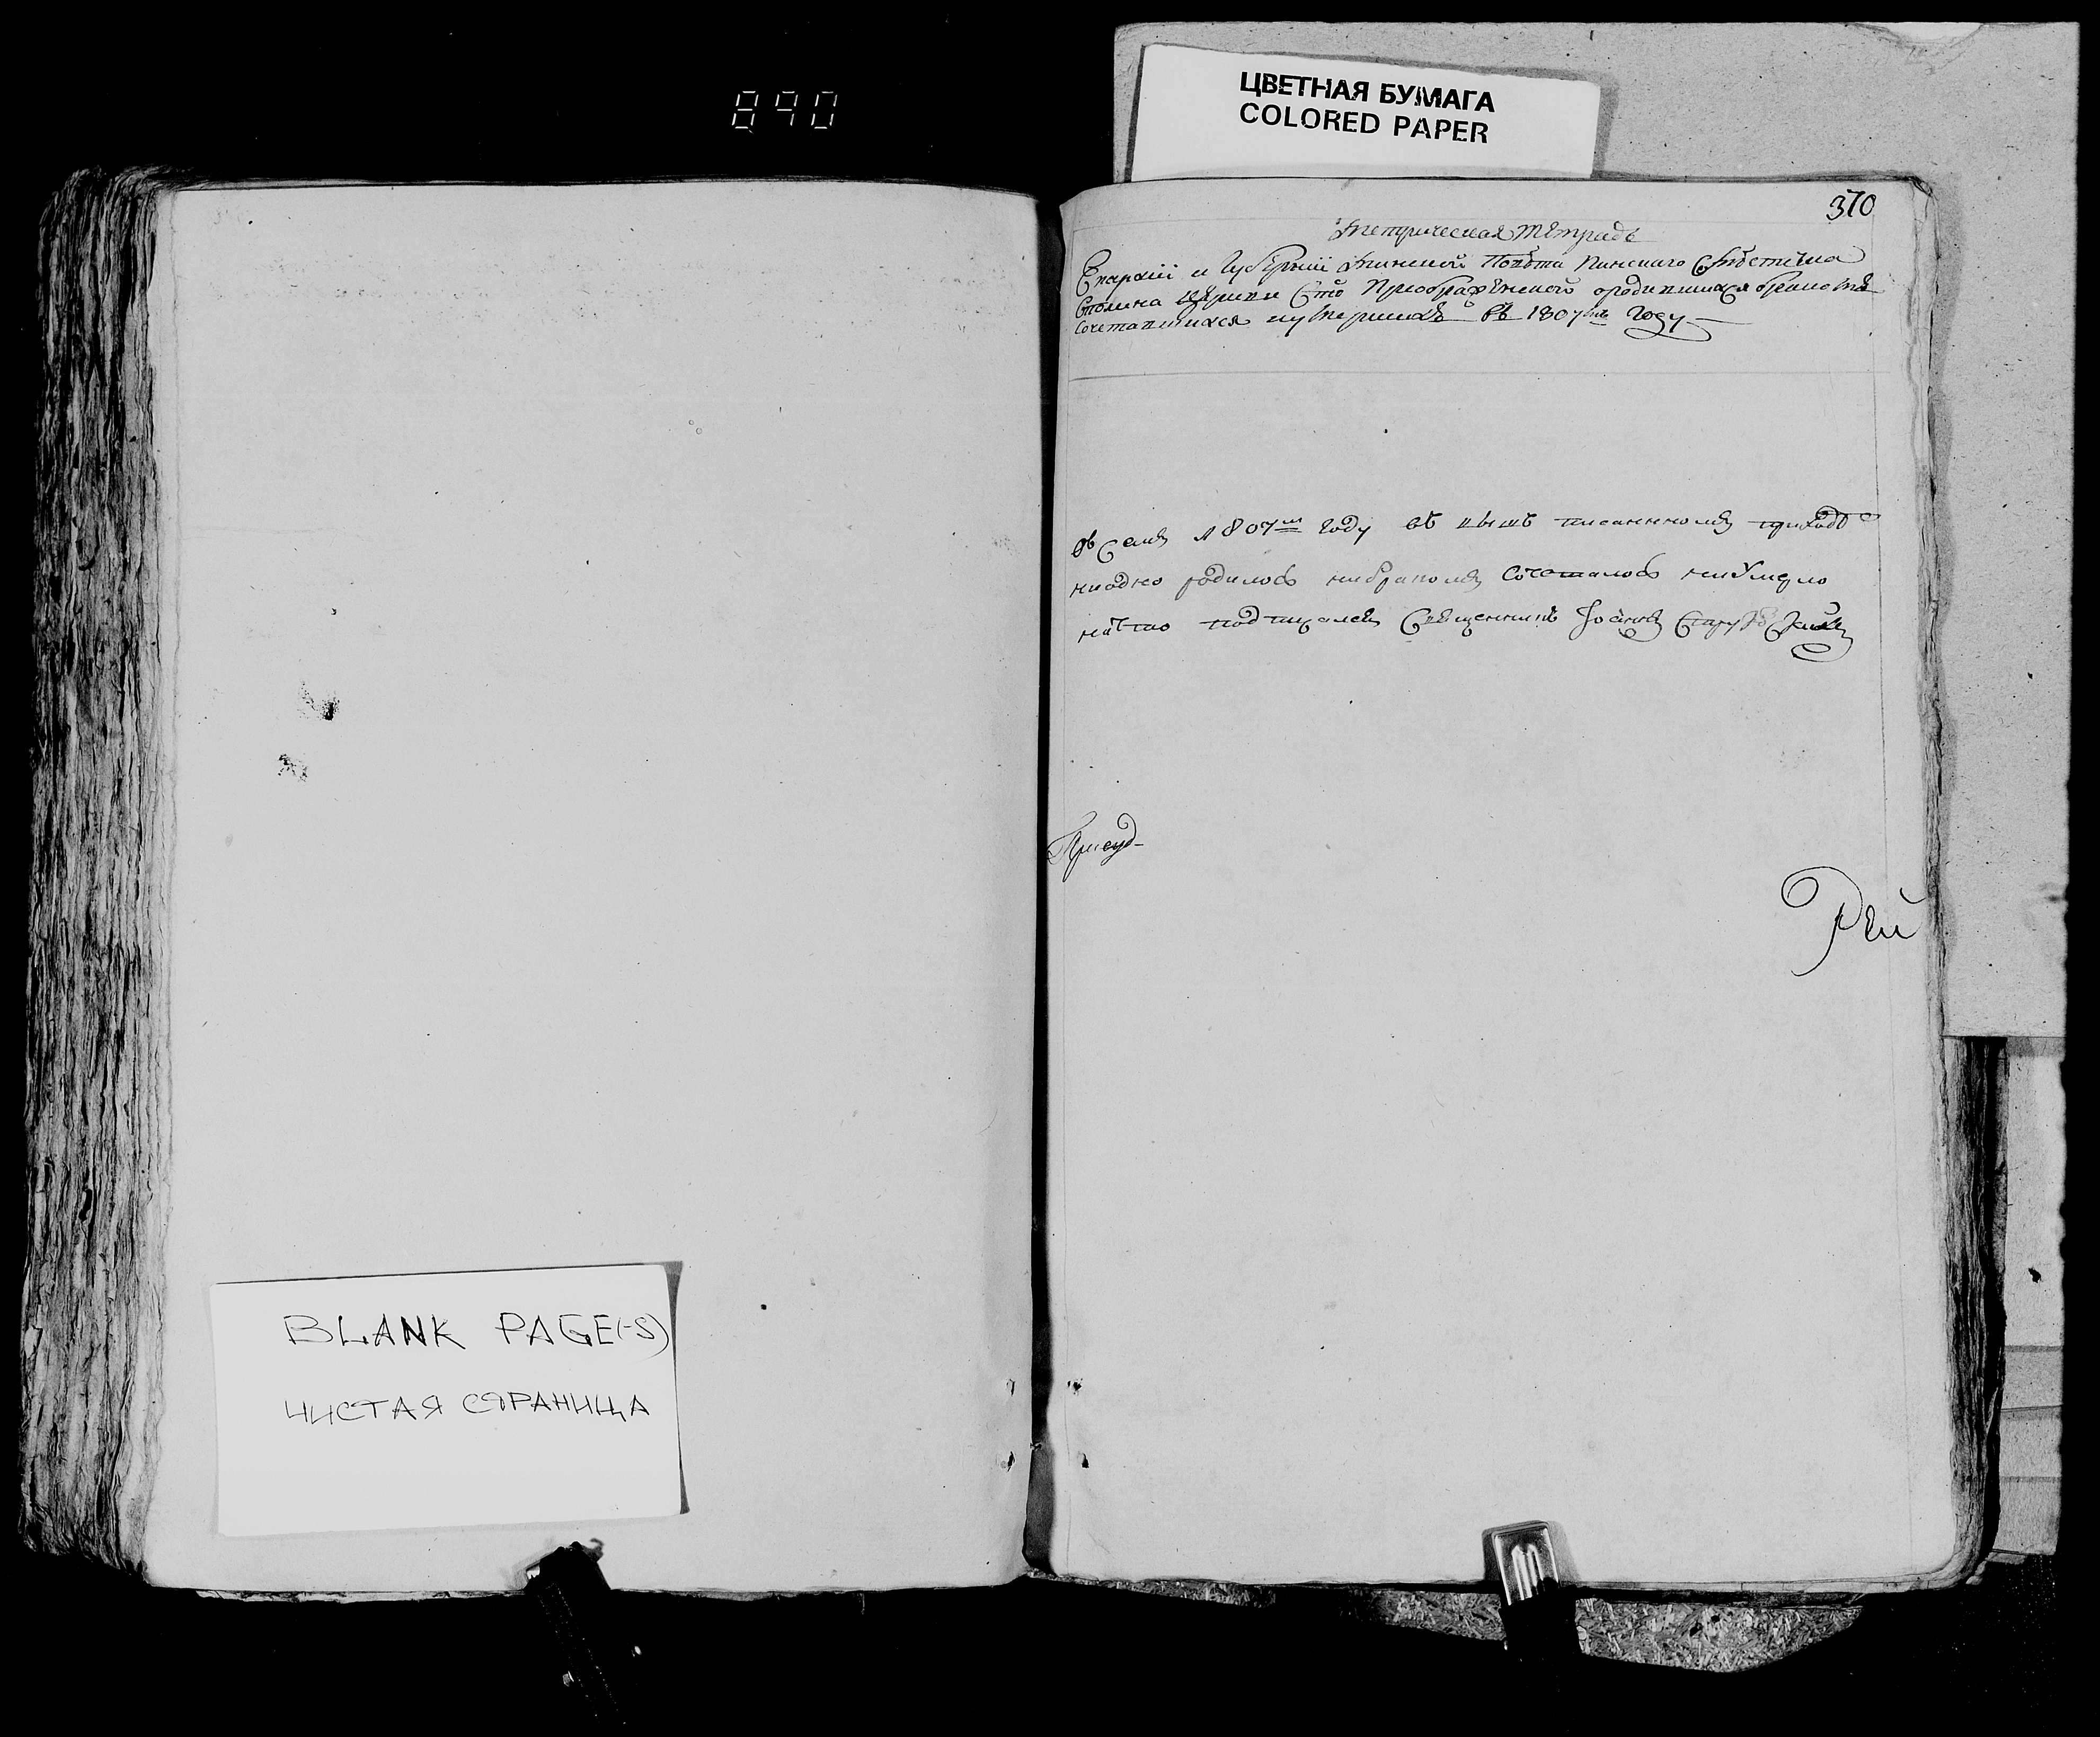 890
ЦВЕТНАЯ БУМАГА
COLORED PAPER
370
Метрическая тетрадь
Епархіи и Губерніи Минской Повѣта Пинскаго Мѣстечка
Столина церкви Сто Преображенской ородившихся бракомъ
Сочетавшихся иумершихъ въ 1807мъ Году
въ Семъ 1807м году въ выше писанномъ приходѣ
ниодно родилось нибракомъ Сочеталось ниУмерло
начто подписалемъ Священникъ Іоаннъ
Рей
BLANK PAGE(-S)
ЧИСТАЯ СТРАНИЦА